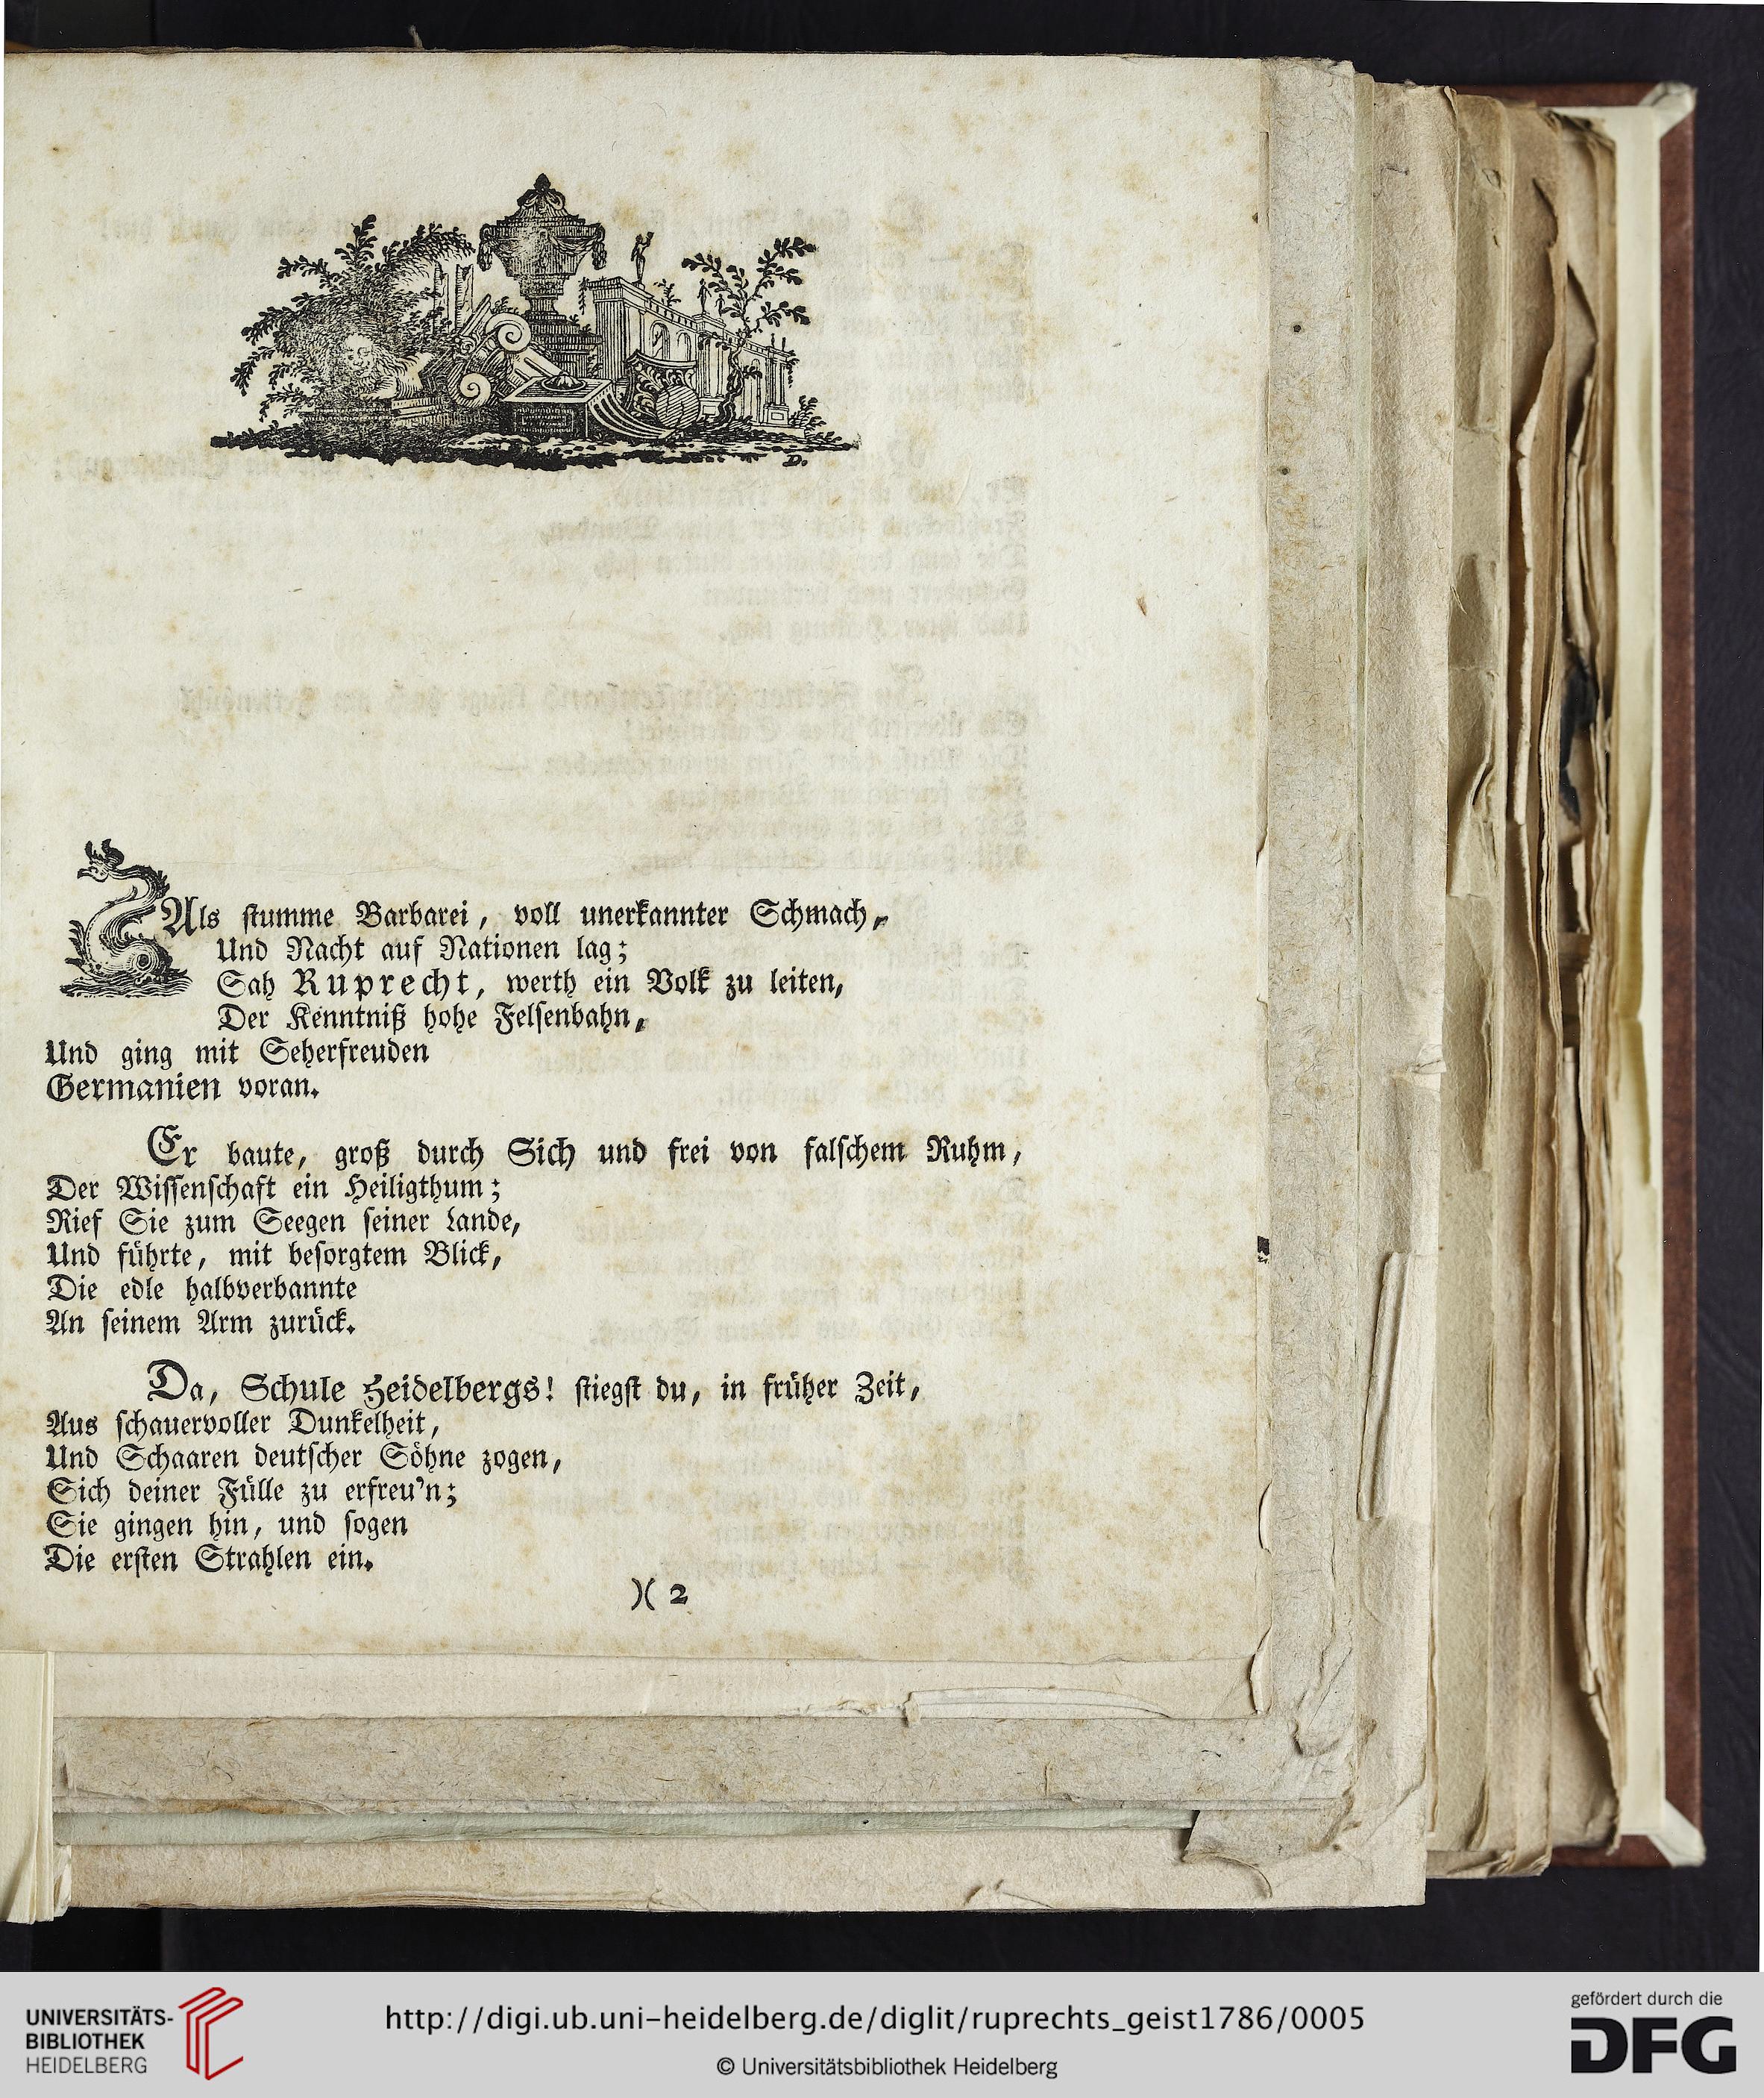 D.
Als stumme Barbarei, voll unerkannter Schmach,
Und Nacht auf Nationen lag;
Sah Ruprecht, werth ein Volk zu leiten,
Der Kenntniß hohe Felsenbahn,
Und ging mit Seherfreuden
Germanien voran.
Er baute, groß durch Sich und frei von falschem Ruhm,
Der Wissenschaft ein Heiligthum;
Rief Sie zum Seegen seiner Lande,
Und führte, mit besorgtem Blick,
Die edle halbverbannte
An seinem Arm zurück.
Da, Schule Heidelbergs! stiegst du, in früher Zeit,
Aus schauervoller Dunkelheit,
Und Schaaren deutscher Söhne zogen,
Sich deiner Fülle zu erfreu'n;
Sie gingen hin, und sogen
Die ersten Strahlen ein.
)( 2
UNIVERSITÄTS-
BIBLIOTHEK
HEIDELBERG
http://digi.ub.uni-heidelberg.de/diglit/ruprechts_geist1786/0005
© Universitätsbibliothek Heidelberg
gefördert durch die
DFG